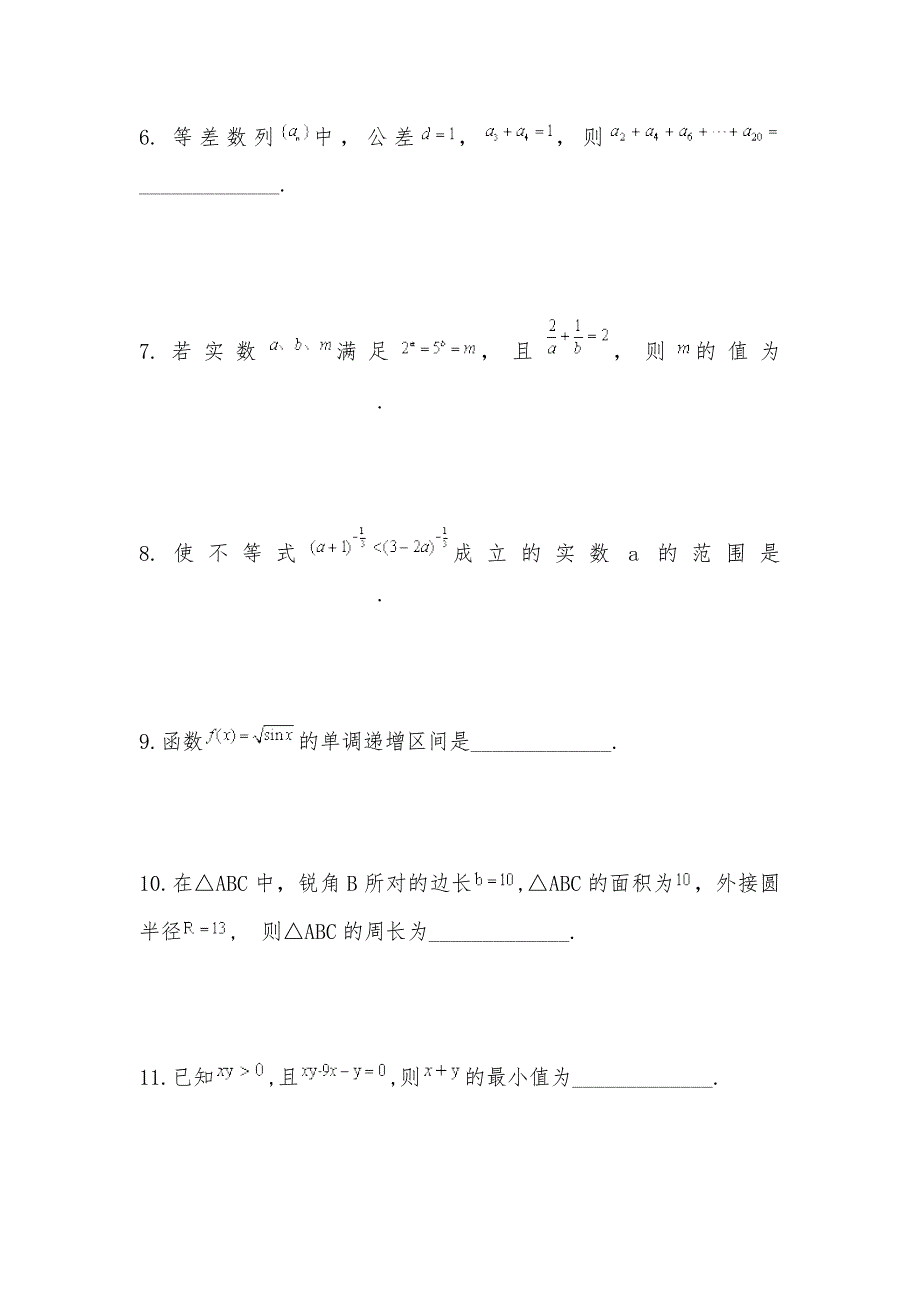 6. 等差数列{aₙ}中，公差d=1，a₃+a₄=1，则a₂+a₄+a₆+⋯+a₂₀=
_____________.
7.若实数a、b、m满足2ᵃ=5ᵇ=m，且2/a+1/b=2，则m的值为
.
8.使不等式(a+1)^(-1/3)<(3-2a)^(-1/3)成立的实数a的范围是
.
9.函数f(x)=√sin x的单调递增区间是_____________.
10.在△ABC中，锐角B所对的边长b=10,△ABC的面积为10，外接圆
半径R=13， 则△ABC的周长为_____________.
11.已知xy>0,且xy-9x-y=0,则x+y的最小值为_____________.